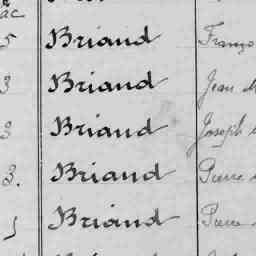 ac
5 Briand Franço
3 Briand Jean M
3 Briand Joseph
3. Briand Pierre
Briand Pierre